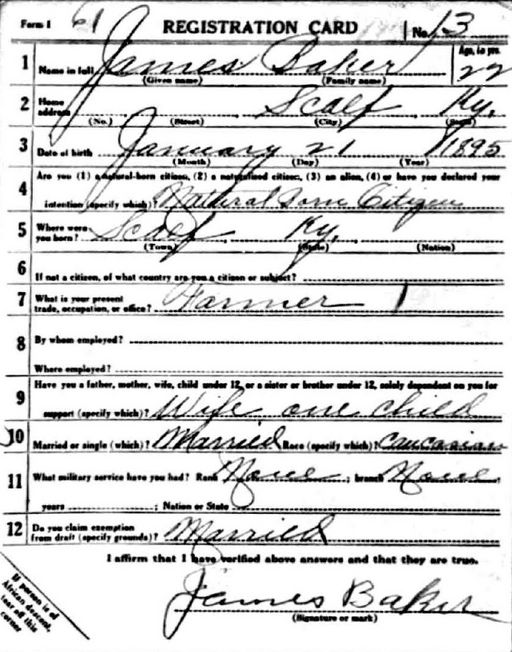 Form 1 61 REGISTRATION CARD No. 13
1 Name in full James Baker Age, in yrs. 22
(Given name) (Family name)
2 Home address Scalf Ky.
(No.) (Street) (City) (State)
3 Date of birth January 21 1895
(Month) (Day) (Year)
4 Are you (1) a natural-born citizen, (2) a naturalized citizen, (3) an alien, (4) or have you declared your
intention (specify which)? Natural born Citizen
5 Where were you born? Scalf Ky.
(Town) (State) (Nation)
6 If not a citizen, of what country are you a citizen or subject?
7 What is your present trade, occupation, or office? Farmer
8 By whom employed?
Where employed?
9 Have you a father, mother, wife, child under 12, or a sister or brother under 12, solely dependent on you for
support (specify which)? Wife one child
10 Married or single (which)? Married Race (specify which)? Caucasian
11 What military service have you had? Rank None ; branch None
years ; Nation or State
12 Do you claim exemption from draft (specify grounds)? Married
I affirm that I have verified above answers and that they are true.
James Baker
(Signature or mark)
If person is of
African descent,
tear off this
corner